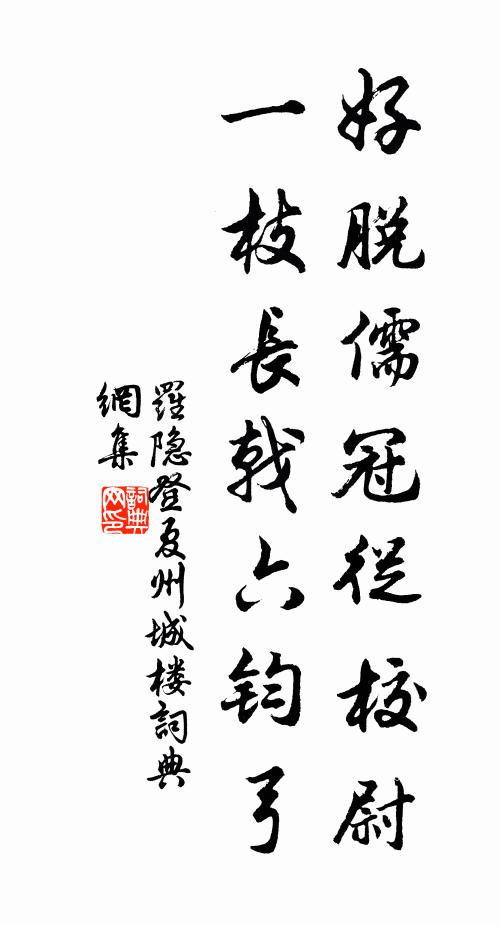 好脱儒冠從校尉
一枝長戟六钧弓
羅隐登夏州城楼詞典
網集
詞典
网印